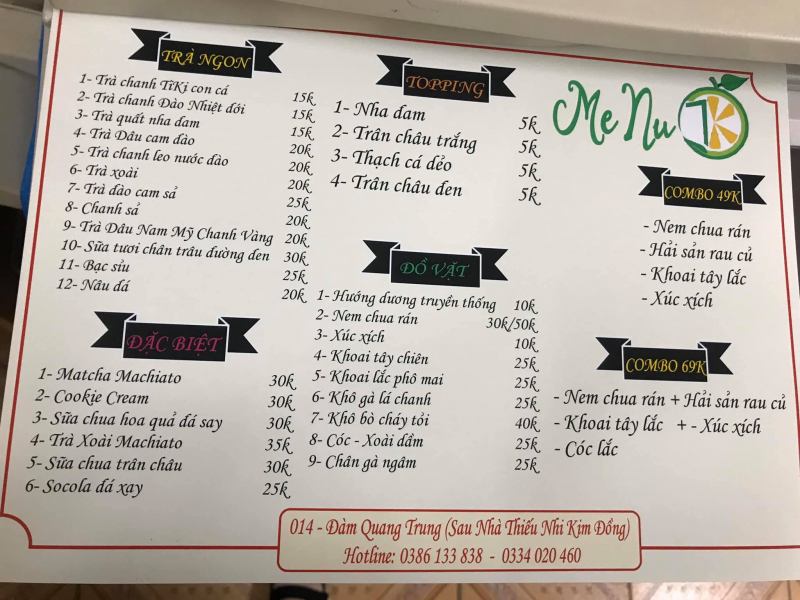 MeNu
TRÀ NGON
1- Trà chanh TiKi con cá 15k
2- Trà chanh Đào Nhiệt đới 15k
3- Trà quất nha đam 15k
4- Trà Dâu cam đào 20k
5- Trà chanh leo nước đào 20k
6- Trà xoài 20k
7- Trà đào cam sả 25k
8- Chanh sả 20k
9- Trà Dâu Nam Mỹ Chanh Vàng 20k
10- Sữa tươi chân trâu đường đen 30k
11- Bạc sỉu 25k
12- Nâu đá 20k
ĐẶC BIỆT
1- Matcha Machiato 30k
2- Cookie Cream 30k
3- Sữa chua hoa quả đá say 30k
4- Trà Xoài Machiato 35k
5- Sữa chua trân châu 30k
6- Socola đá xay 25k
TOPPING
1- Nha đam 5k
2- Trân châu trắng 5k
3- Thạch cá dẻo 5k
4- Trân châu đen 5k
ĐỒ VẶT
1- Hướng dương truyền thống 10k
2- Nem chua rán 30k/50k
3- Xúc xích 10k
4- Khoai tây chiên 25k
5- Khoai lắc phô mai 25k
6- Khô gà lá chanh 25k
7- Khô bò cháy tỏi 40k
8- Cóc - Xoài dầm 25k
9- Chân gà ngâm 25k
COMBO 49K
- Nem chua rán
- Hải sản rau củ
- Khoai tây lắc
- Xúc xích
COMBO 69K
- Nem chua rán + Hải sản rau củ
- Khoai tây lắc + - Xúc xích
- Cóc lắc
014 - Đàm Quang Trung (Sau Nhà Thiếu Nhi Kim Đồng)
Hotline: 0386 133 838 - 0334 020 460